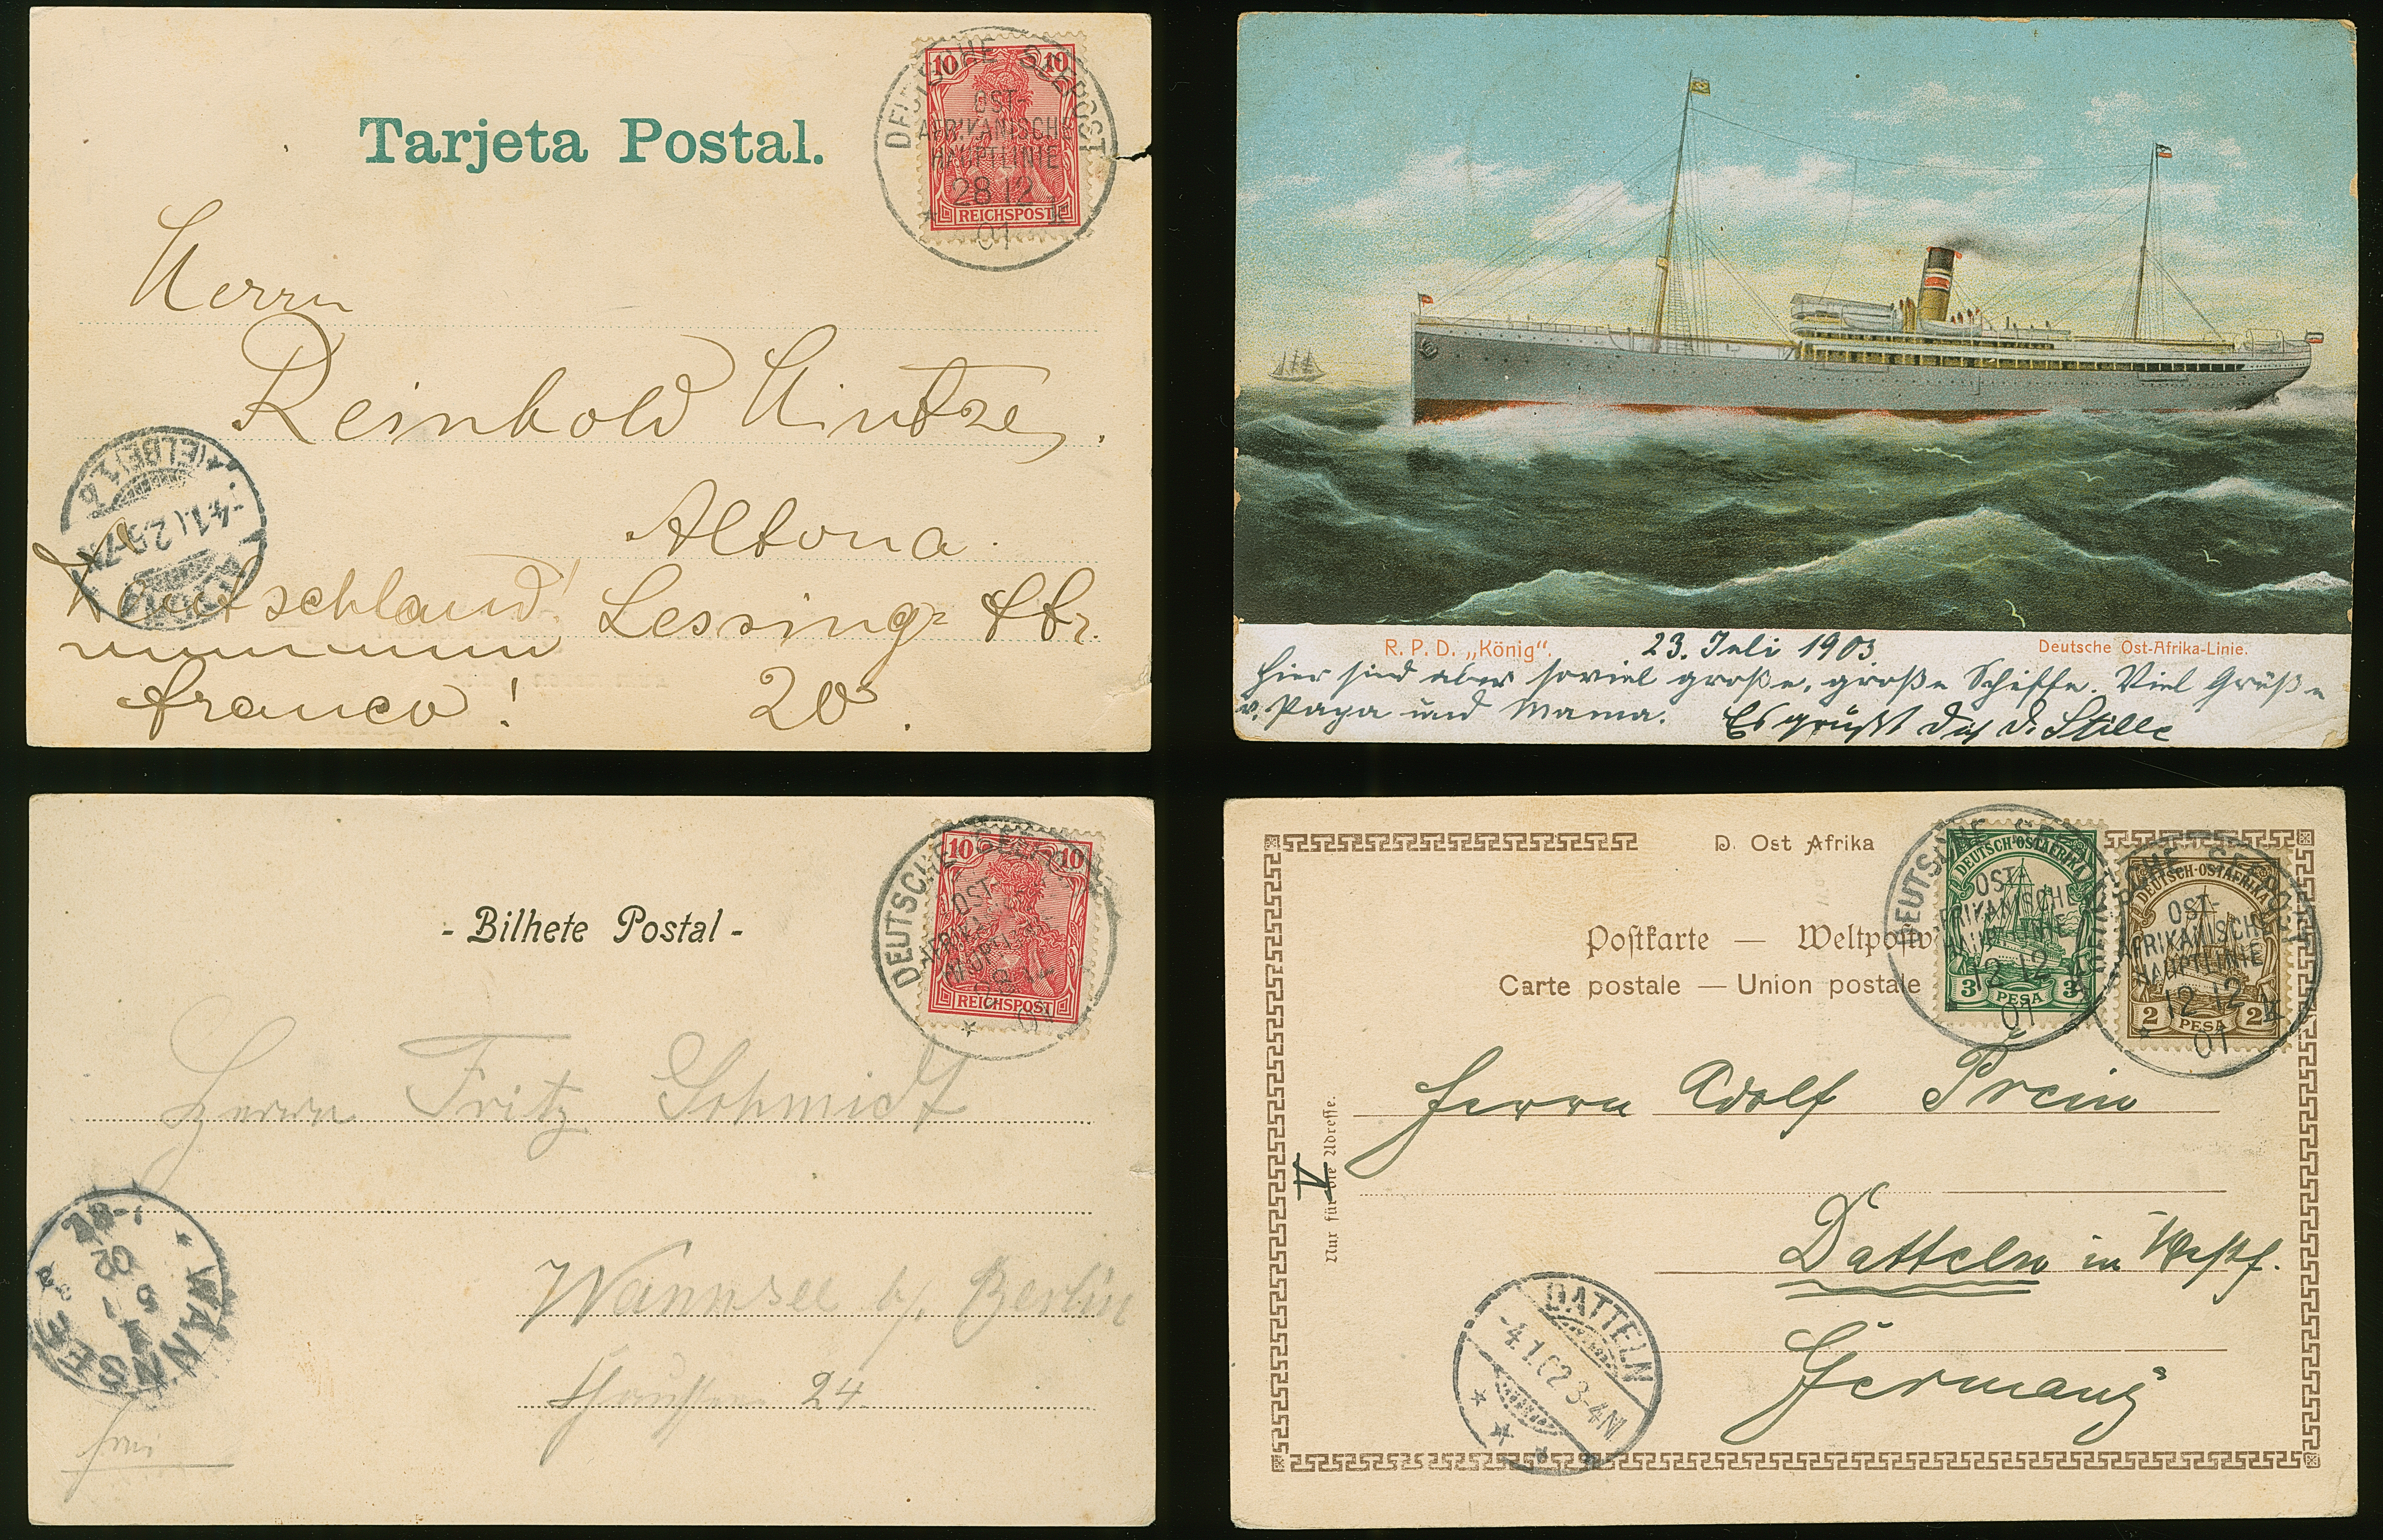 Tarjeta Postal.
10 10
REICHSPOST
DEUTSCHE SEEPOST
OST-
AFRIKANISCHE
HAUPTLINIE
28 12
01
Herrn
Reinhold Hintze,
Altona.
Deutschland! Lessing= Str.
franco! 20
R. P. D. „König“. 23. Juli 1903 Deutsche Ost-Afrika-Linie.
Hier sind aber soviel große, große Schiffe. Viel Grüße
v. Papa und Mama. Es grüßt
- Bilhete Postal -
10 10
REICHSPOST
DEUTSCHE SEEPOST
OST-
AFRIKANISCHE
HAUPTLINIE
01
Herrn Fritz Schmidt
Wannsee b/. Berlin
24
WANNSEE
5 1
02
frei
D. Ost Afrika
Postkarte — Weltpostv
Carte postale — Union postale
DEUTSCH-OSTAFRIKA
3 PESA 3
DEUTSCH-OSTAFRIKA
2 PESA 2
DEUTSCHE SEEPOST
OST-
AFRIKANISCHE
HAUPTLINIE
12 12
01
DEUTSCHE SEEPOST
OST-
AFRIKANISCHE
HAUPTLINIE
12 12
01
Nur für die Adresse.
V
Herrn Adolf Prein
Datteln in Westf.
Germany
DATTELN
-4.1.02.3-4N